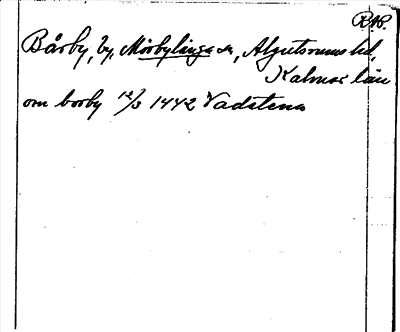 RAP.
Bårby, by, Mörbylånga sn, Algutsrums hd,
Kalmar län
om borby 12/3 1442 Vadstena